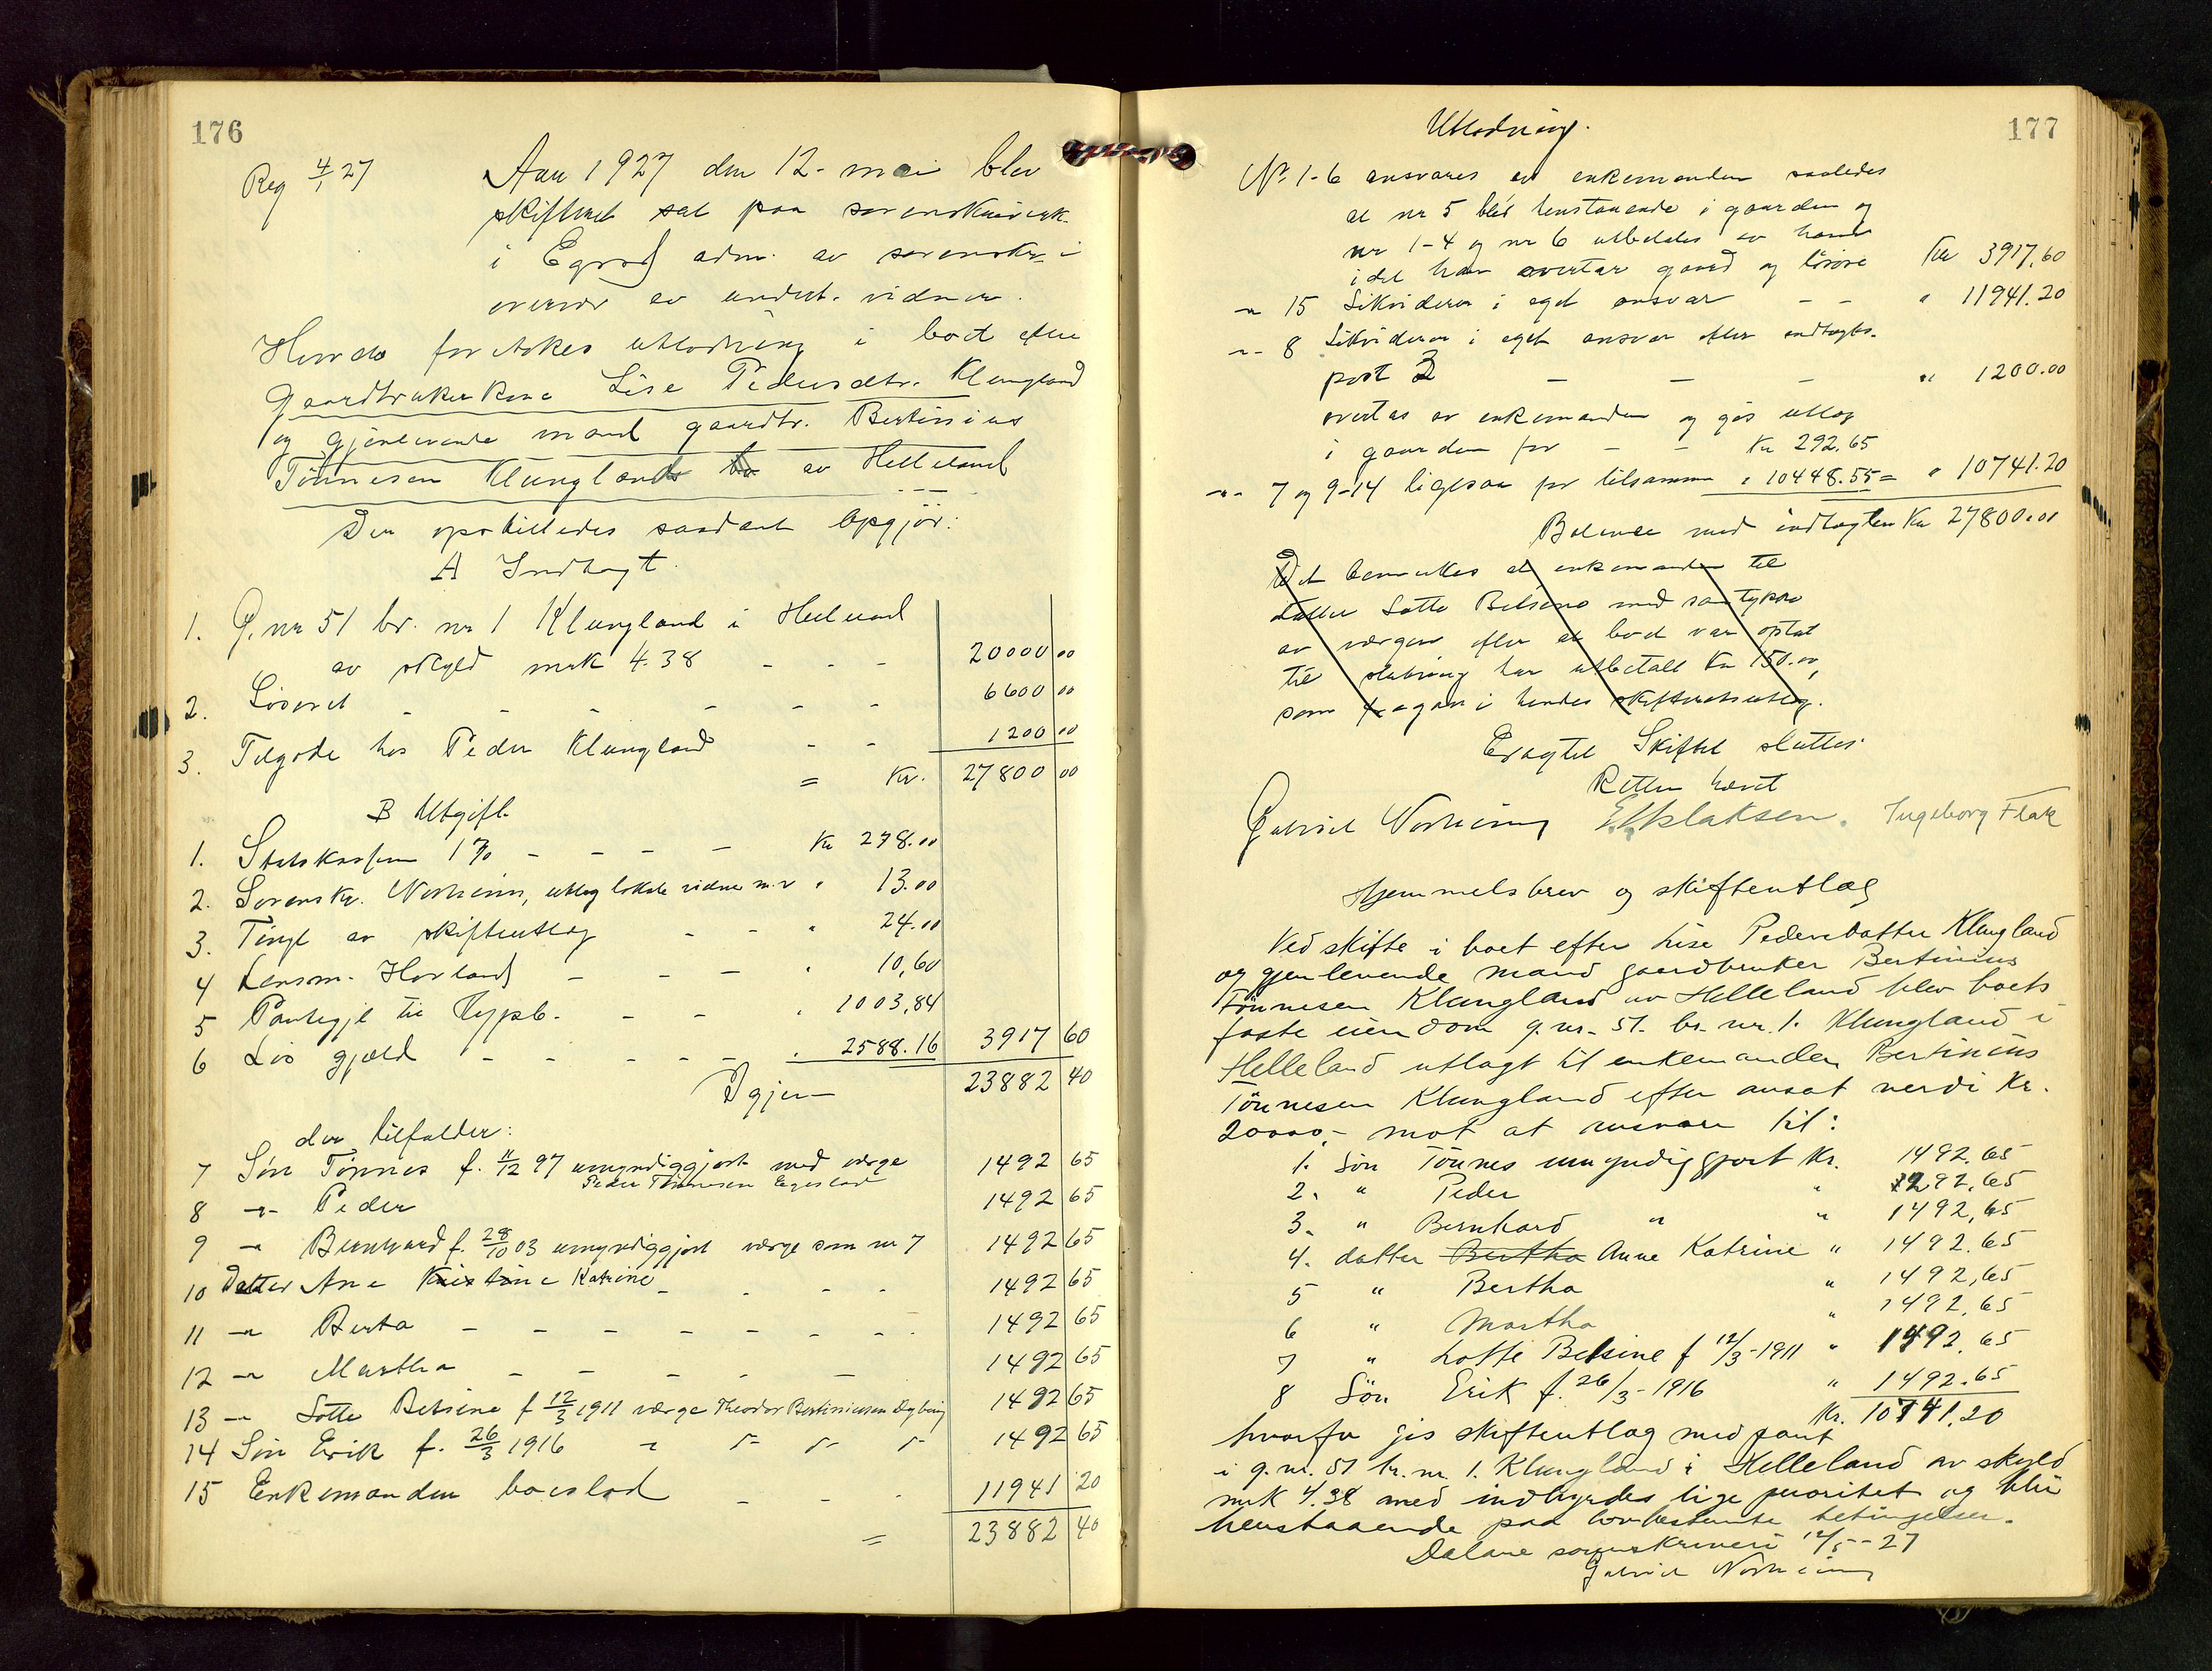 176
Reg 4/1 27
Aar 1927 den 12- mai blev
skifteret sat paa sorenskriverk.
i Egersd adm. av sorenskr. i
overvær av undert. vidner.
Herredes foretokes utlodning i boet efter
Gaardbrukerkone Lise Pedersdtr. Klungland
og gjenlevende mand gaardbr. Bertinius
Tønnesen Klungland av Helleland
Der opstilledes saadant Opgjør:
A Indtægt.
1. G. nr 51 br. nr 1 Klungland i Helleland
av skyld mrk 4.38 - - - 20000 00
2. Løsøret - - - - - - 6600 00
3. Tilgode hos Peder Klungland - - 1200 00
= Kr. 27800 00
B Utgift.
1. Statskassen 1% - - - - Kr 278.00
2. Sorenskr. Norheim, utlæg lokale vidner m.v " 13.00
3. Tingl av skifteutlæg - - " 24.00
4 Lensm. Hovland - - - " 10,60
5 Pantegjl til Hypb. - - " 1003,84
6 Løs gjæld - - - - - " 2588.16 3917 60
Igjen 23882 40
der tilfalder:
7 Søn Tønnes f. 11/12 97 umyndiggjort med værge 1492 65
Peder Tønnesen Egeland
8 -"- Peder 1492 65
9 -" Bernhard f. 28/10 03 umyndiggjort værge som nr 7 1492 65
10 Datter Ane Kristine Katrine - - - - 1492 65
11 -" Berta - - - - - - - - 1492 65
12 -" Martha - - - - - 1492 65
13 -" Lotte Betsine f 12/3 1911 værge Theodor Bertiniusen Dybing 1492 65
14 Søn Erik f. 26/3 1916 " " " " 1492 65
15 Enkemanden boeslod - - - 11941 20
= 23882 40
177
Utlodning.
Nr 1-6 ansvares av enkemanden saaledes
at nr 5 blir henstaaende i gaarden og
nr 1-4 og nr 6 utbetales av ham
idet han overtar gaard og løsøre Kr 3917.60
-" 15 Likviderer i eget ansvar - - " 11941.20
-"- 8 Likviderer i eget ansvar efter indtægts-
post 3 - - - " 1200.00
overtas av enkemanden og gis utlæg
i gaarden for - - Kr 292.65
-"- 7 og 9-14 ligesaa for tilsammen " 10448.55 = " 10741.20
Balance med indtægten Kr 27800.00
Det bemerkes at enkemanden til
datter Lotte Betsine med samtykke
av værgen efter at boet var optat
til skiftning har utbetalt Kr 150.00,
som fragaar i hendes skifteretsutlæg.
Eragtet Skiftet sluttes
Retten hævet
Gabriel Norheim Ingeborg Flak
Hjemmelsbrev og skifteutlæg
Ved skifte i boet efter Lise Pedersdatter Klungland
og gjenlevende mand gaardbruker Bertinius
Tönnesen Klungland av Helleland blev boets
faste eiendom g.nr. 51. br. nr. 1. Klungland i
Helleland utlagt til enkemanden Bertinius
Tönnesen Klungland efter ansat verdi Kr.
20000,- mot at ansvare til:
1. Sön Tönnes umyndiggjort Kr. 1492.65
2. " Peder " 292.65
3. " Bernhard " " 1492,65
4. datter Bertha Anne Katrine " 1492.65
5 " Bertha " 1492,65
6 " Martha " 1492.65
7 " Lotte Betsine f 12/3-1911 " 1492.65
8 Sön Erik f. 26/3-1916 " 1492.65
Kr. 10741,20
hvorfor gis skifteutlæg med pant
i g.nr. 51 br.nr. 1. Klungland i Helleland av skyld
mrk 4.38 med indbyrdes lige prioritet og blir
henstaaende paa lovbestemte betingelser.
Dalane sorenskriveri 12/5-27
Gabriel Norheim